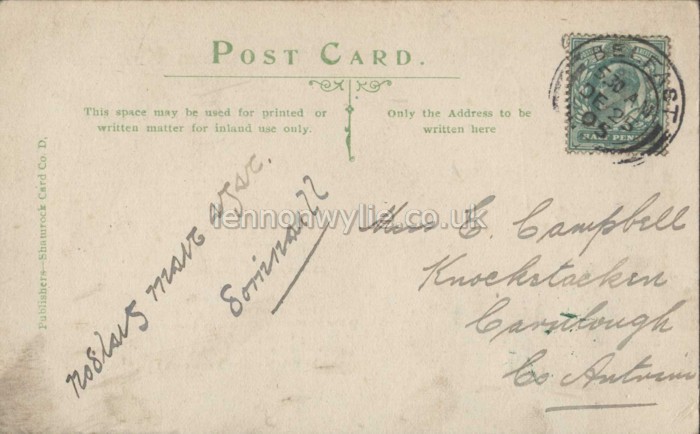 POST CARD.
This space may be used for printed or
written matter for inland use only.
Only the Address to be
written here
Publishers—Shamrock Card Co. D.
nodlaig mait agat.
Domnall
Miss E. Campbell
Knockstacken
Carnlough
Co Antrim
BELFAST
DE
05
HALF PENNY
lennonwylie.co.uk